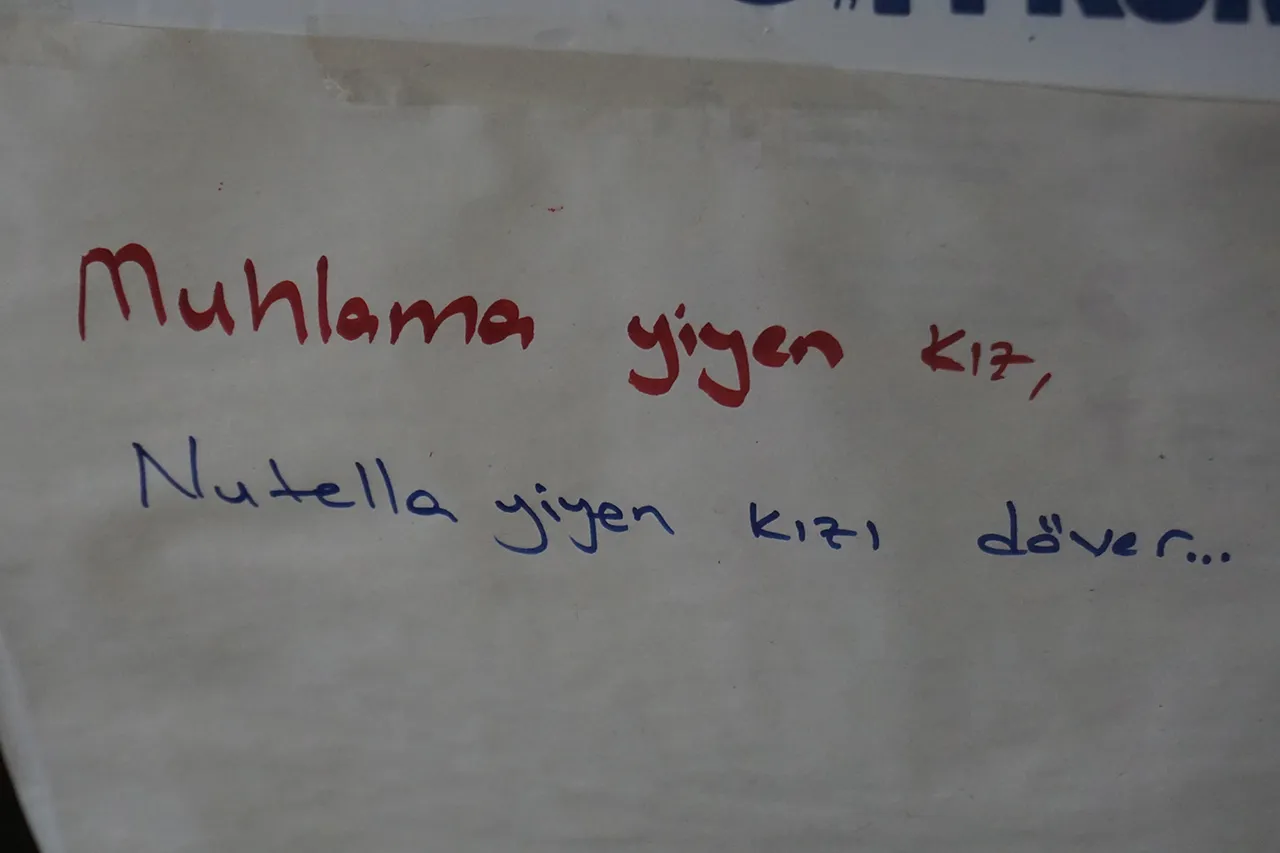 Muhlama yiyen kız,
Nutella yiyen kızı döver...